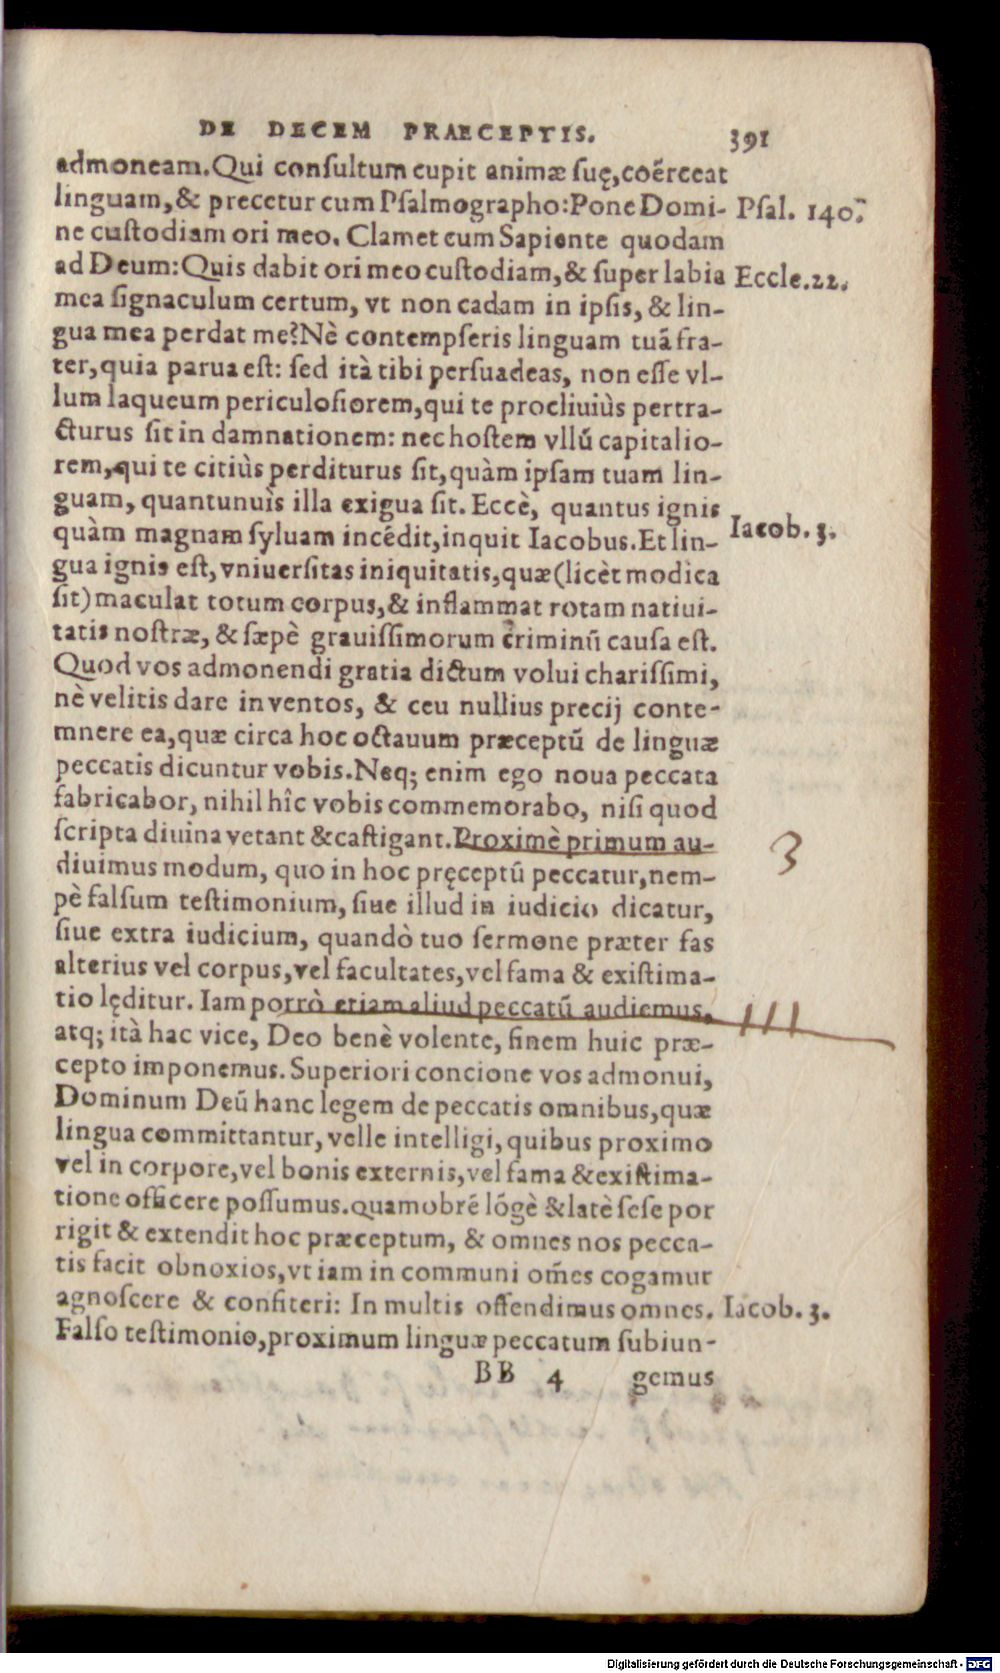 DE DECEM PRAECEPTIS. 391
admoneam. Qui consultum cupit animæ suę, coërceat
linguam, & precetur cum Psalmographo: Pone Domi- Psal. 140.
ne custodiam ori meo. Clamet cum Sapiente quodam
ad Deum: Quis dabit ori meo custodiam, & super labia Eccle. 22.
mea signaculum certum, vt non cadam in ipsis, & lin-
gua mea perdat me? Nè contempseris linguam tuā fra-
ter, quia parua est: sed ità tibi persuadeas, non esse vl-
lum laqueum periculosiorem, qui te procliuiùs pertra-
cturus sit in damnationem: nec hostem vllū capitalio-
rem, qui te citiùs perditurus sit, quàm ipsam tuam lin-
guam, quantunuis illa exigua sit. Eccè, quantus ignis
quàm magnam syluam incēdit, inquit Iacobus. Et lin- Iacob. 3.
gua ignis est, vniuersitas iniquitatis, quæ (licèt modica
sit) maculat totum corpus, & inflammat rotam natiui-
tatis nostræ, & sæpè grauissimorum criminū causa est.
Quod vos admonendi gratia dictum volui charissimi,
nè velitis dare in ventos, & ceu nullius precij conte-
mnere ea, quæ circa hoc octauum præceptū de linguæ
peccatis dicuntur vobis. Neq; enim ego noua peccata
fabricabor, nihil hîc vobis commemorabo, nisi quod
scripta diuina vetant & castigant. Proximè primum au-
diuimus modum, quo in hoc pręceptū peccatur, nem- 3
pè falsum testimonium, siue illud in iudicio dicatur,
siue extra iudicium, quandò tuo sermone præter fas
alterius vel corpus, vel facultates, vel fama & existima-
tio lęditur. Iam porrò etiam aliud peccatū audiemus, III
atq; ità hac vice, Deo benè volente, finem huic præ-
cepto imponemus. Superiori concione vos admonui,
Dominum Deū hanc legem de peccatis omnibus, quæ
lingua committantur, velle intelligi, quibus proximo
vel in corpore, vel bonis externis, vel fama & existima-
tione officere possumus. quamobrē lōgè & latè sese por
rigit & extendit hoc præceptum, & omnes nos pecca-
tis facit obnoxios, vt iam in communi om̄es cogamur
agnoscere & confiteri: In multis offendimus omnes. Iacob. 3.
Falso testimonio, proximum linguæ peccatum subiun-
BB 4 gemus
Digitalisierung gefördert durch die Deutsche Forschungsgemeinschaft - DFG